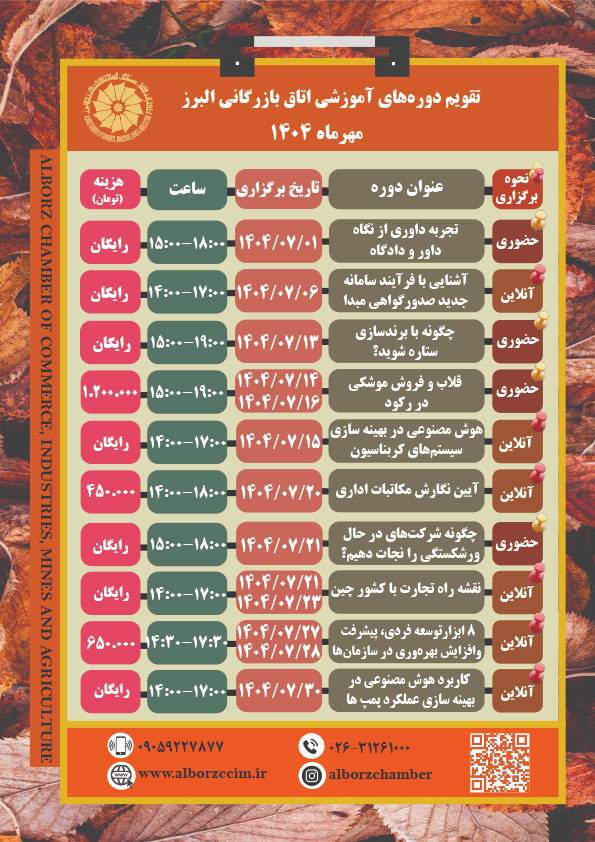 تقویم دوره‌های آموزشی اتاق بازرگانی البرز
مهرماه ۱۴۰۴
ALBORZ CHAMBER OF COMMERCE, INDUSTRIES, MINES AND AGRICULTURE
نحوه برگزاری
عنوان دوره
تاریخ برگزاری
ساعت
هزینه (تومان)
حضوری
تجربه داوری از نگاه
داور و دادگاه
۱۴۰۴/۰۷/۰۱
۱۵:۰۰-۱۸:۰۰
رایگان
آنلاین
آشنایی با فرآیند سامانه
جدید صدورگواهی مبدا
۱۴۰۴/۰۷/۰۶
۱۴:۰۰-۱۷:۰۰
رایگان
حضوری
چگونه با برندسازی
ستاره شوید؟
۱۴۰۴/۰۷/۱۳
۱۵:۰۰-۱۹:۰۰
رایگان
حضوری
قلاب و فروش موشکی
در رکود
۱۴۰۴/۰۷/۱۴
۱۴۰۴/۰۷/۱۶
۱۵:۰۰-۱۹:۰۰
۱.۲۰۰.۰۰۰
آنلاین
هوش مصنوعی در بهینه سازی
سیستم‌های کربناسیون
۱۴۰۴/۰۷/۱۵
۱۴:۰۰-۱۷:۰۰
رایگان
آنلاین
آیین نگارش مکاتبات اداری
۱۴۰۴/۰۷/۲۰
۱۴:۰۰-۱۸:۰۰
۴۵۰.۰۰۰
حضوری
چگونه شرکت‌های در حال
ورشکستگی را نجات دهیم؟
۱۴۰۴/۰۷/۲۱
۱۵:۰۰-۱۸:۰۰
رایگان
آنلاین
نقشه راه تجارت با کشور چین
۱۴۰۴/۰۷/۲۱
۱۴۰۴/۰۷/۲۳
۱۴:۰۰-۱۷:۰۰
رایگان
آنلاین
۸ ابزارتوسعه فردی، پیشرفت
وافزایش بهره‌وری در سازمان‌ها
۱۴۰۴/۰۷/۲۷
۱۴۰۴/۰۷/۲۸
۱۴:۳۰-۱۷:۳۰
۶۵۰.۰۰۰
آنلاین
کاربرد هوش مصنوعی در
بهینه سازی عملکرد پمپ ها
۱۴۰۴/۰۷/۳۰
۱۴:۰۰-۱۷:۰۰
رایگان
۰۲۶-۳۱۲۶۱۰۰۰
۰۹۰۵۹۲۲۷۸۷۷
alborzchamber
www.alborzccim.ir